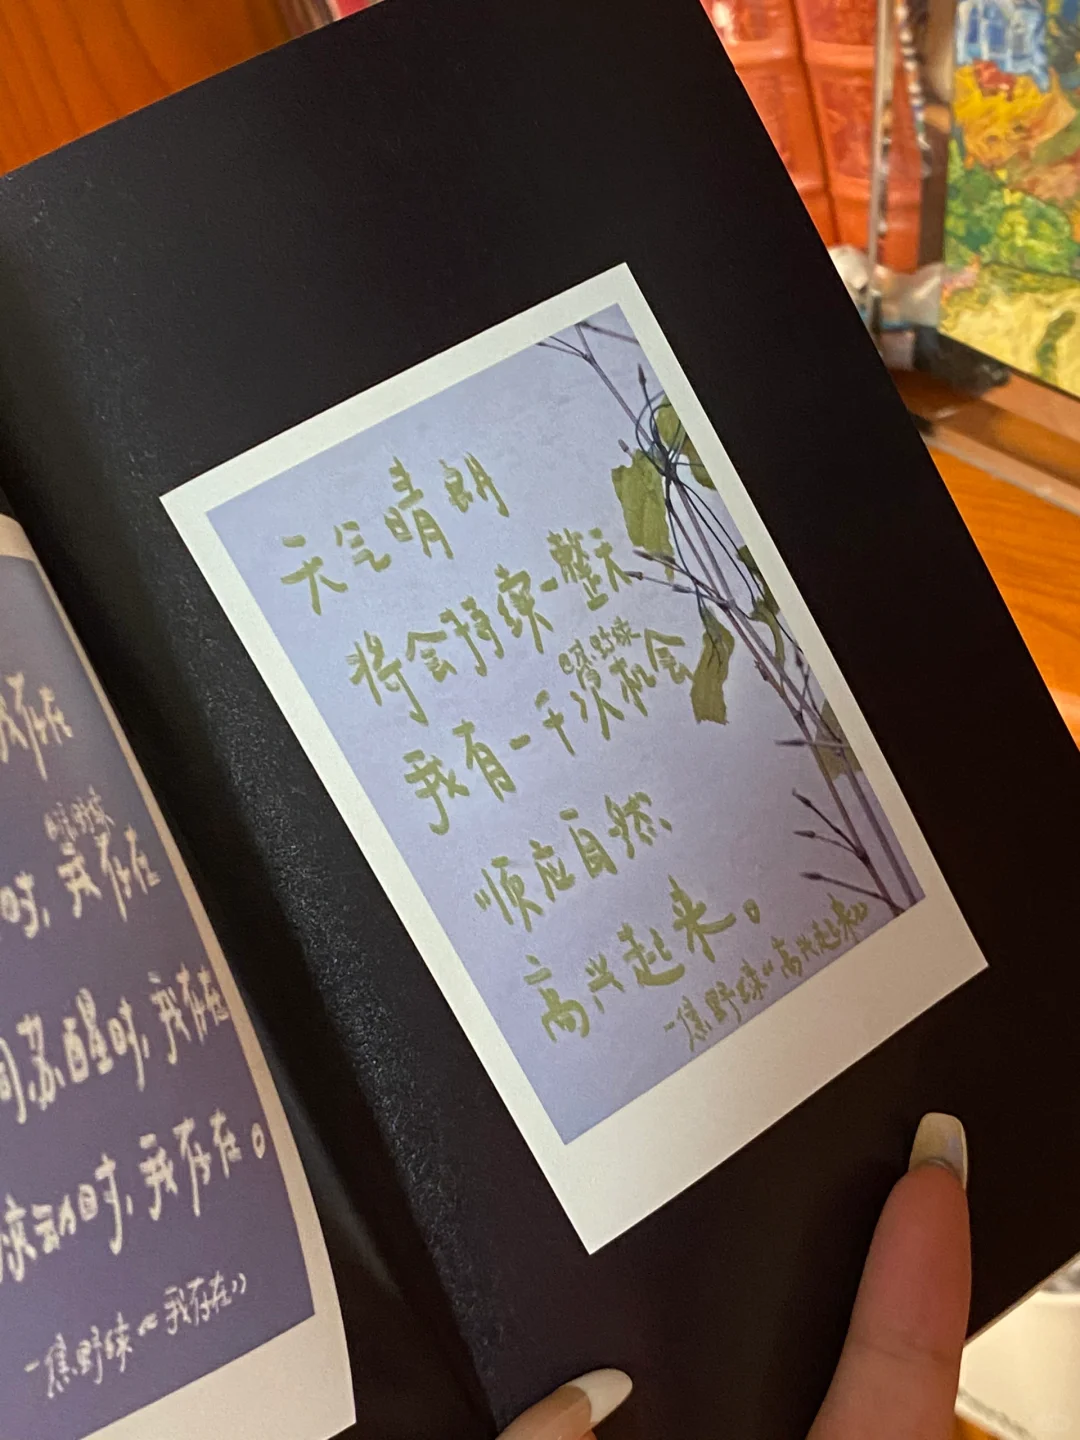 我存在
时，我存在
间苏醒时，我存在
滚动时，我存在。
-焦野绿《我存在》
天气晴朗
将会持续一整天
我有一千次机会
顺应自然
高兴起来。
-焦野绿《高兴起来》